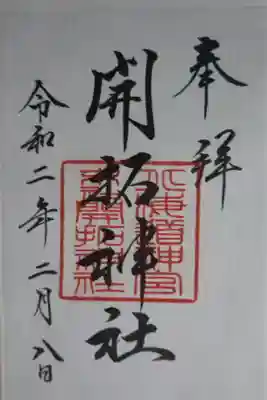 奉拝
開拓神社
北海道神宮
末社開拓神社
令和二年二月八日